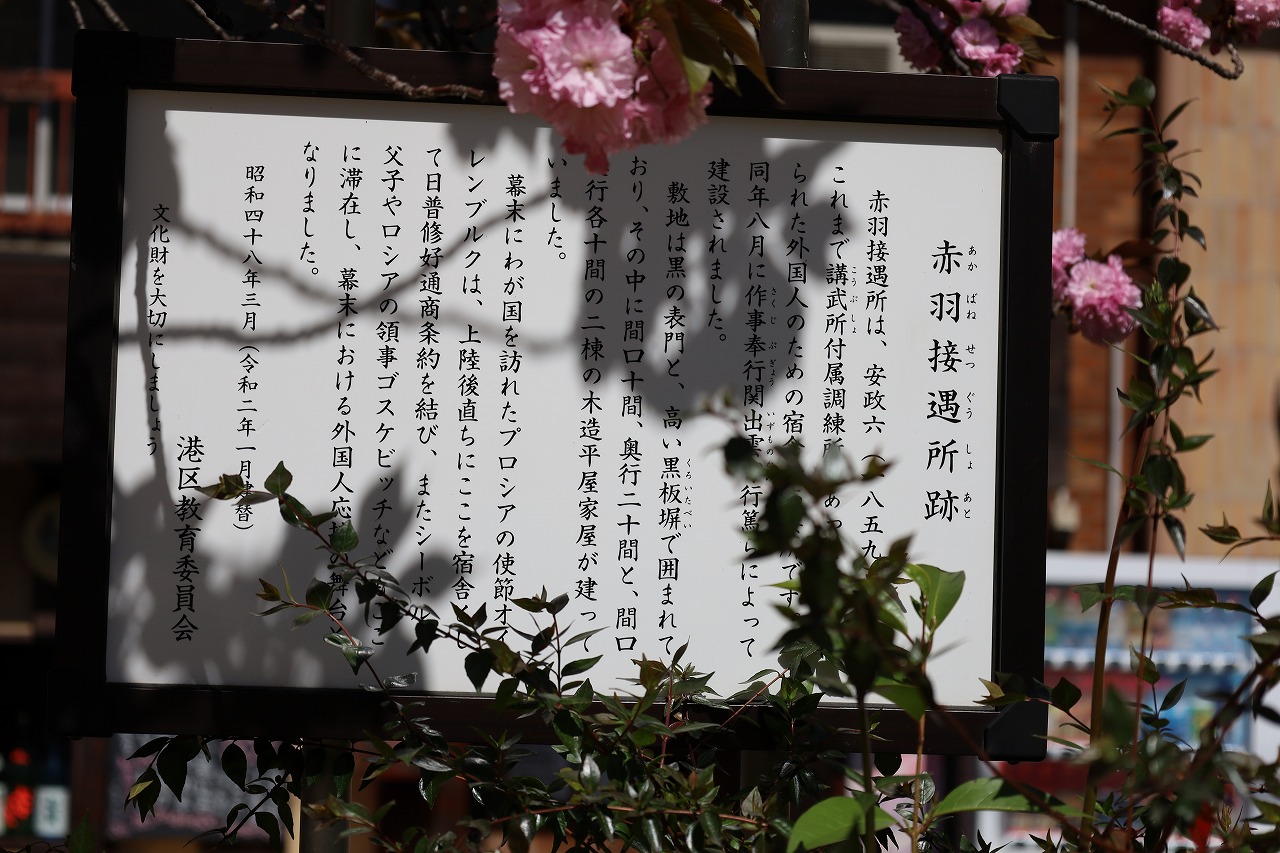 赤羽接遇所跡
あか ばね せつ ぐう しょ あと
赤羽接遇所は、安政六（八五九
これまで講武所付属調練所 あっ
こうぶしょ
られた外国人のための宿 です
同年八月に作事奉行関出雲 行篤らによって
さくじ ぶぎょう いずもの
建設されました。
敷地は黒の表門と、高い黒板塀で囲まれて
くろいたべい
おり、その中に間口十間、奥行二十間と、間口
行各十間の二棟の木造平屋家屋が建って
いました。
幕末にわが国を訪れたプロシアの使節オ
レンブルクは、上陸後直ちにここを宿舎と
て日普修好通商条約を結び、またシーボ
父子やロシアの領事ゴスケビッチなど ここ
に滞在し、幕末における外国人応接 舞台
なりました。
昭和四十八年三月（令和二年一月建替）
港区教育委員会
文化財を大切にしましょう